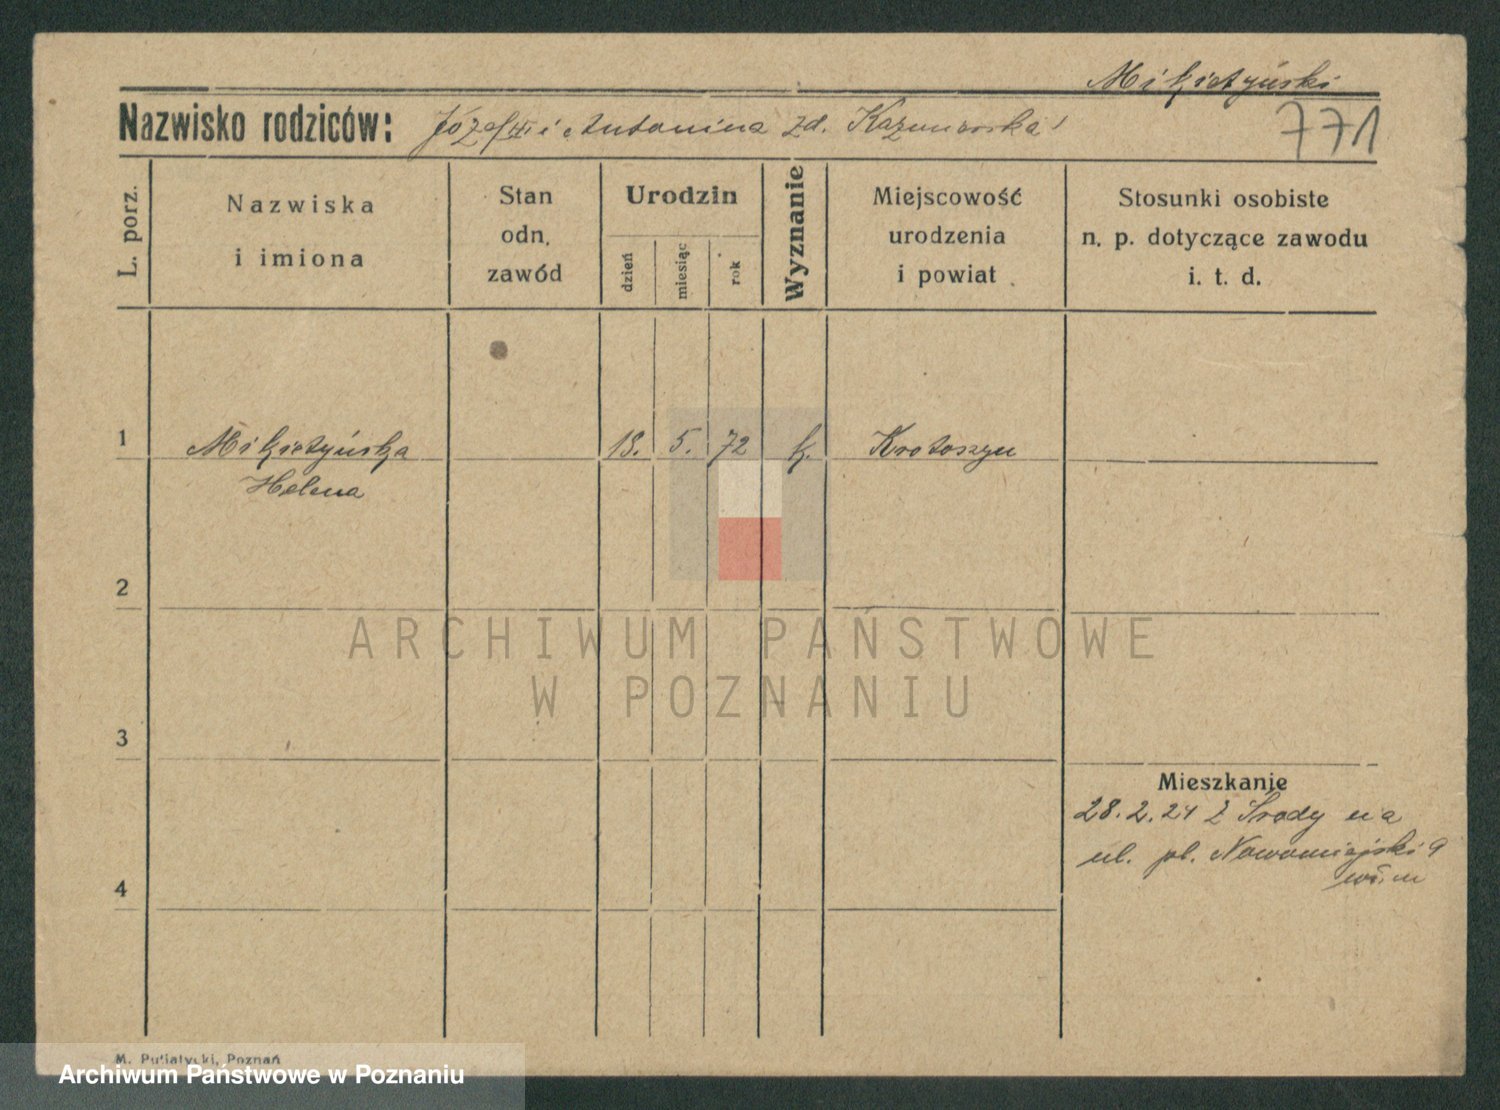 Mikietyński
Nazwisko rodziców: Józef i Antonina zd.
771
L. porz.
Nazwiska
i imiona
Stan
odn.
zawód
Urodzin
dzień
miesiąc
rok
Wyznanie
Miejscowość
urodzenia
i powiat
Stosunki osobiste
n. p. dotyczące zawodu
i. t. d.
1
Mikietyńska
Helena
18. 5. 72 k. Krotoszyn
2
ARCHIWUM PAŃSTWOWE
W POZNANIU
3
Mieszkanie
28.2.24 z Środy na
ul. pl. Nowomiejski 9
4
M. Putiatycki, Poznań
Archiwum Państwowe w Poznaniu